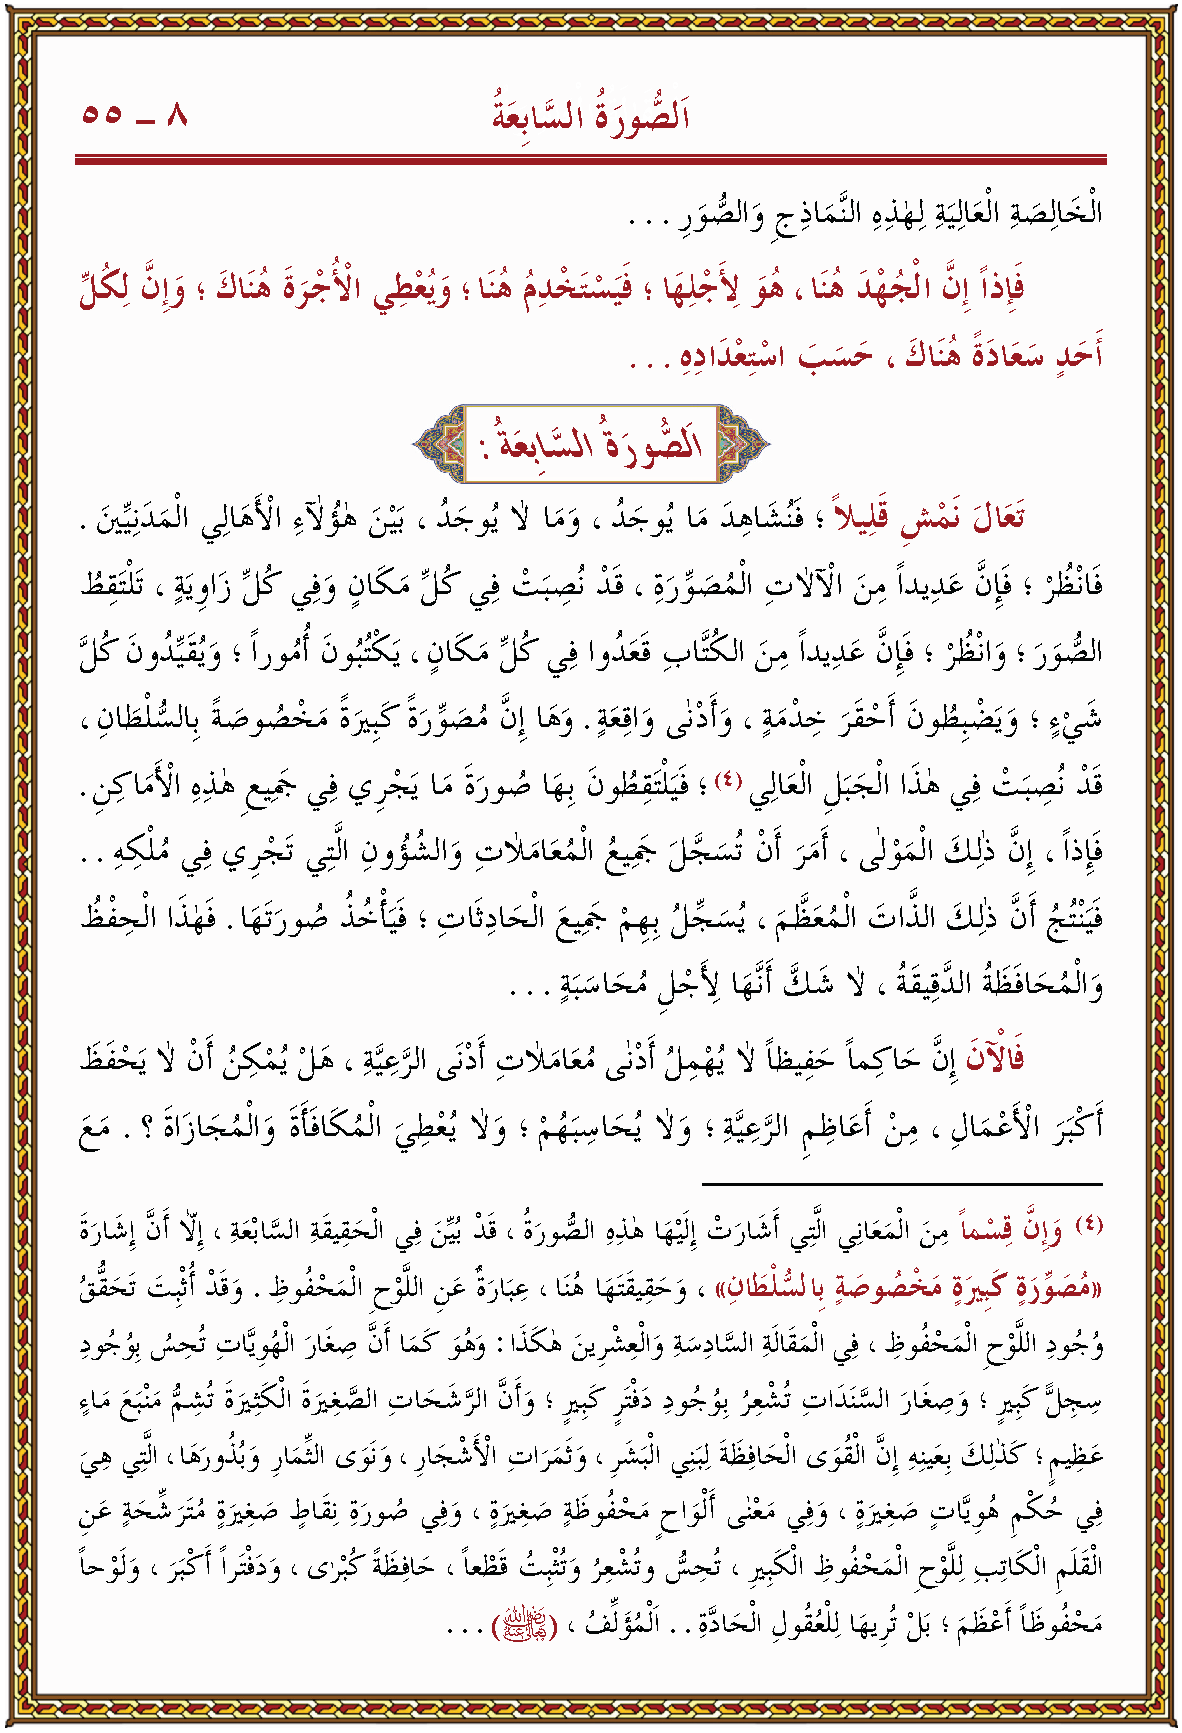 اَلصُّورَةُ السَّابِعَةُ
٨ ــ ٥٥
الْخَالِصَةِ الْعَالِيَةِ لِهٰذِهِ النَّمَاذِجِ وَالصُّوَرِ . . .
فَإِذاً إِنَّ الْجُهْدَ هُنَا ، هُوَ لِأَجْلِهَا ؛ فَيَسْتَخْدِمُ هُنَا ؛ وَيُعْطِي الْأُجْرَةَ هُنَاكَ ؛ وَإِنَّ لِكُلِّ
أَحَدٍ سَعَادَةً هُنَاكَ ، حَسَبَ اسْتِعْدَادِهِ . . .
اَلصُّورَةُ السَّابِعَةُ :
تَعَالَ نَمْشِ قَلِيلاً ؛ فَنُشَاهِدَ مَا يُوجَدُ ، وَمَا لَا يُوجَدُ ، بَيْنَ هٰؤُلَآءِ الْأَهَالِي الْمَدَنِيِّينَ .
فَانْظُرْ ؛ فَإِنَّ عَدِيداً مِنَ الْآلَاتِ الْمُصَوِّرَةِ ، قَدْ نُصِبَتْ فِي كُلِّ مَكَانٍ وَفِي كُلِّ زَاوِيَةٍ ، تَلْتَقِطُ
الصُّوَرَ ؛ وَانْظُرْ ؛ فَإِنَّ عَدِيداً مِنَ الْكُتَّابِ قَعَدُوا فِي كُلِّ مَكَانٍ ، يَكْتُبُونَ أُمُوراً ؛ وَيُقَيِّدُونَ كُلَّ
شَيْءٍ ؛ وَيَضْبِطُونَ أَحْقَرَ خِدْمَةٍ ، وَأَدْنٰى وَاقِعَةٍ . وَهَا إِنَّ مُصَوِّرَةً كَبِيرَةً مَخْصُوصَةً بِالسُّلْطَانِ ،
قَدْ نُصِبَتْ فِي هٰذَا الْجَبَلِ الْعَالِي (٤) ؛ فَيَلْتَقِطُونَ بِهَا صُورَةَ مَا يَجْرِي فِي جَمِيعِ هٰذِهِ الْأَمَاكِنِ .
فَإِذاً ، إِنَّ ذٰلِكَ الْمَوْلٰى ، أَمَرَ أَنْ تُسَجَّلَ جَمِيعُ الْمُعَامَلَاتِ وَالشُّؤُونِ الَّتِي تَجْرِي فِي مُلْكِهِ . .
فَيَنْتُجُ أَنَّ ذٰلِكَ الذَّاتَ الْمُعَظَّمَ ، يُسَجِّلُ بِهِمْ جَمِيعَ الْحَادِثَاتِ ؛ فَيَأْخُذُ صُورَتَهَا . فَهٰذَا الْحِفْظُ
وَالْمُحَافَظَةُ الدَّقِيقَةُ ، لَا شَكَّ أَنَّهَا لِأَجْلِ مُحَاسَبَةٍ . . .
فَالْآنَ إِنَّ حَاكِماً حَفِيظاً لَا يُهْمِلُ أَدْنٰى مُعَامَلَاتِ أَدْنَى الرَّعِيَّةِ ، هَلْ يُمْكِنُ أَنْ لَا يَحْفَظَ
أَكْبَرَ الْأَعْمَالِ ، مِنْ أَعَاظِمِ الرَّعِيَّةِ ؛ وَلَا يُحَاسِبَهُمْ ؛ وَلَا يُعْطِيَ الْمُكَافَأَةَ وَالْمُجَازَاةَ ؟ . مَعَ
(٤) وَإِنَّ قِسْماً مِنَ الْمَعَانِي الَّتِي أَشَارَتْ إِلَيْهَا هٰذِهِ الصُّورَةُ ، قَدْ بُيِّنَ فِي الْحَقِيقَةِ السَّابْعَةِ ، إِلَّا أَنَّ إِشَارَةَ
«مُصَوِّرَةٍ كَبِيرَةٍ مَخْصُوصَةٍ بِالسُّلْطَانِ» ، وَحَقِيقَتَهَا هُنَا ، عِبَارَةٌ عَنِ اللَّوْحِ الْمَحْفُوظِ . وَقَدْ أُثْبِتَ تَحَقُّقُ
وُجُودِ اللَّوْحِ الْمَحْفُوظِ ، فِي الْمَقَالَةِ السَّادِسَةِ وَالْعِشْرِينَ هٰكَذَا : وَهُوَ كَمَا أَنَّ صِغَارَ الْهُوِيَّاتِ تُحِسُّ بِوُجُودِ
سِجِلٍّ كَبِيرٍ ؛ وَصِغَارَ السَّنَدَاتِ تُشْعِرُ بِوُجُودِ دَفْتَرٍ كَبِيرٍ ؛ وَأَنَّ الرَّشَحَاتِ الصَّغِيرَةَ الْكَثِيرَةَ تُشِمُّ مَنْبَعَ مَاءٍ
عَظِيمٍ ؛ كَذٰلِكَ بِعَيْنِهِ إِنَّ الْقُوَى الْحَافِظَةَ لِبَنِي الْبَشَرِ ، وَثَمَرَاتِ الْأَشْجَارِ ، وَنَوَى الثِّمَارِ وَبُذُورَهَا ، الَّتِي هِيَ
فِي حُكْمِ هُوِيَّاتٍ صَغِيرَةٍ ، وَفِي مَعْنٰى أَلْوَاحٍ مَحْفُوظَةٍ صَغِيرَةٍ ، وَفِي صُورَةِ نِقَاطٍ صَغِيرَةٍ مُتَرَشِّحَةٍ عَنِ
الْقَلَمِ الْكَاتِبِ لِلَّوْحِ الْمَحْفُوظِ الْكَبِيرِ ، تُحِسُّ وتُشْعِرُ وَتُثْبِتُ قَطْعاً ، حَافِظَةً كُبْرٰى ، وَدَفْتَراً أَكْبَرَ ، وَلَوْحاً
مَحْفُوظاً أَعْظَمَ ؛ بَلْ تُرِيهَا لِلْعُقُولِ الْحَادَّةِ . . اَلْمُؤَلِّفُ ، (رضي الله تعالى عنه) . . .